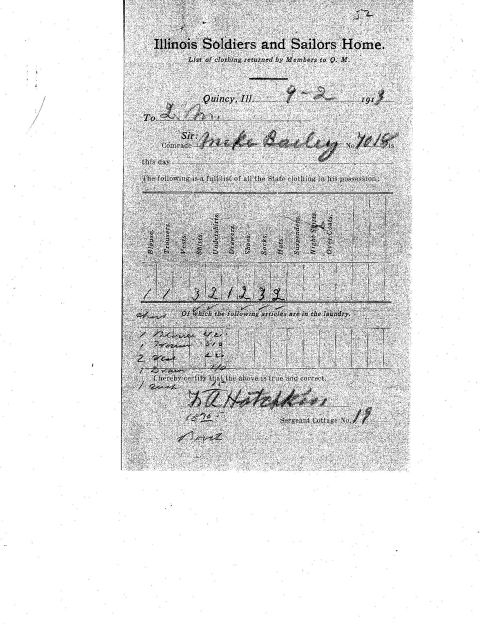 52
Illinois Soldiers and Sailors Home.
List of clothing returned by Members to Q. M.
Quincy, Ill. 9-2 1913
To Q. M.
Sir:
Comrade Mike Bailey No. 7018 is
this day
The following is a full list of all the State clothing in his possession:
Blouse. Trousers. Vests. Shirts. Undershirts. Drawers. Shoes. Socks. Hats. Suspenders. Night Shirts. Over Coats.
1 1 3 2 1 2 3 2
Of which the following articles are in the laundry.
1 Blouse
1 Trouser
2
1 Drawer
1
I hereby certify that the above is true and correct.
Hotchkiss
Sergeant Cottage No. 19